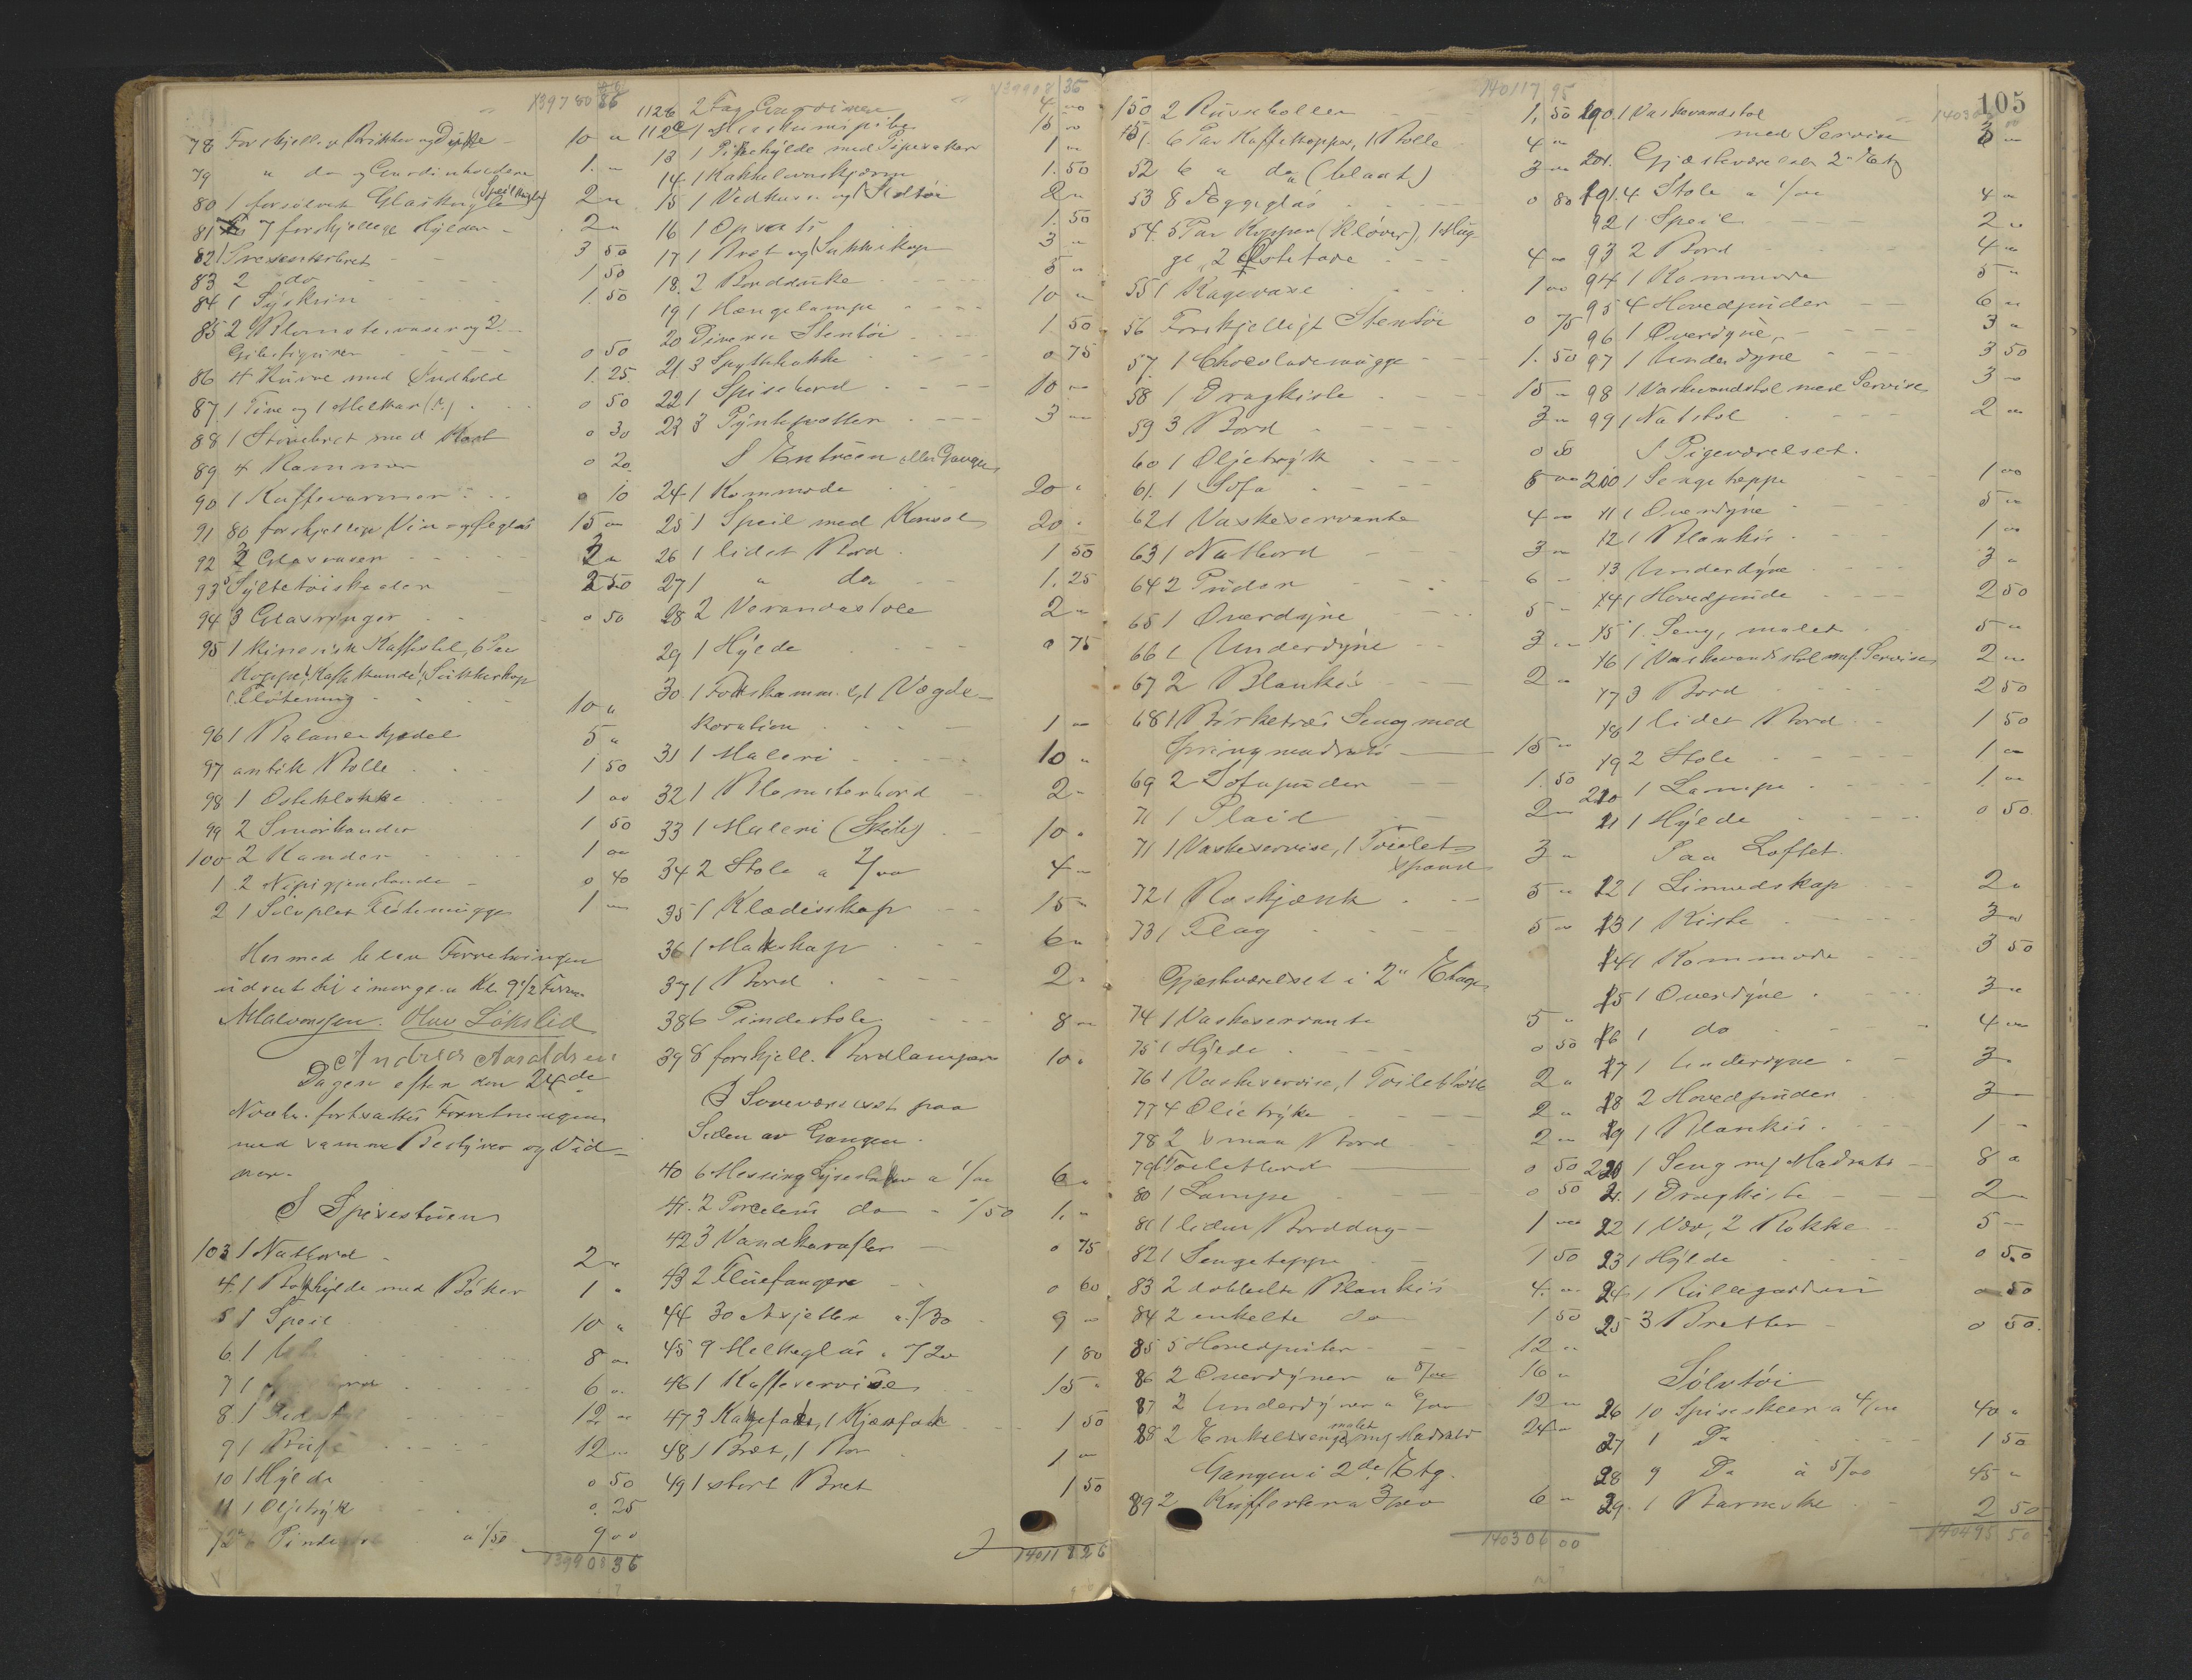 139780 86
78 Forskjell. Brikker og Duke - 10 "
79 " do og Gardinholdere 1. -
80 1 forsølvet Glaskugle (Speilkugle) 2 "
81 7 forskjellige Hylder - 2 "
82 1 Presenterbret - - 3 50
83 2 do - - - - 1 50
84 1 Syskrin - - - - 1. 50
85 2 Blomstervaser og 2
Gibsfigurer - - - - 0 50
86 4 Kurve med Indhold 1. 25
87 1 Tine og 1 Melkar (?) . 0 50
88 1 Strøebret med Kost 0 30
89 4 Rammer 0 20
90 1 Kaffevarmer . . . 0 10
91 80 forskjellige Vin og Ølglas 15 "
92 2 Glasvaser - - - - 2 "
93 Syltetøiskaaler - 2 50
94 3 Glasringer - 0 50
95 1 kinesisk Kaffestel, 6 Par
Kopper, 1 Kaffekande, 1 Sukkerkop
1 Fløtemug - - - 10 "
96 1 Balance kjedel 5 "
97 antik Bolle 1 50
98 1 Osteklokke 1 00
99 2 Smørkander 1 50
100 2 Kander - - - 1 00
1 2 Nipsgjenstande - 0 40
2 1 Sølvplet Fløtemugge 1 -
Hermed blev Forretningen
udsat til i morgen Kl. 9 1/2 Form.
AHalvorsen. Olav Løkslid
Andreas Aaraldsen
Dagen efter den 24de
Novbr. fortsattes Forretningen
med samme Bestyrer og Vid-
ner.
I Spisestuen
103 1 Natbord - 2 "
4. 1 Boghylde med Bøker 1 "
5 1 Speil 10 "
6. 1 8 "
7 1 6 "
8. 1 12 "
9 1 Buffe 12 "
10 1 Hylde 0 50
11 1 Oljetryk 0. 25
12 6 Pindestole a 1/50 9 00
139908 36
139918 36
1126 2 Fag Gardiner 4 00
112c 1 Merskumspibe 15 "
13 1 Pibehylde med Pipesaker 1 "
14 1 Kakkelovnskjærm 1. 50
15 1 Vedkasse og Ildtøi 2 "
16 1 Opsats 1. 50
17 1 Bret og 1 Sukkerkop 3 "
18. 2 Bordduke - - - - 5 "
19 1 Hængelampe - - - - 10 "
20 Diverse Stentøi - - - 1 50
21. 3 Spyttebakke - - - 0 75
22 1 Spisebord - - - - 10 "
23 3 Pyntepotter - - - 3 "
I Entreen eller Gangen
24 1 Kommode - - 20 "
25 1 Speil med Konsol 20 "
26 1 lidet Bord . 1 50
27 1 " do - - - 1. 25
28 2 Verandastole 2 "
29 1 Hylde - - - - 0 75
30 1 Forskamm. & 1 Vægde-
koration - - - - 1 "
31 1 Maleri - - - - 10 "
32 1 Blomsterbord - 2 -
33 1 Maleri (Skib) - 10 "
34 2 Stole a 2/00 4 "
35 1 Klædeskap 15 "
36 1 Matskap 6 "
37 1 Bord - - 2 "
38 6 Pindestole - - - 8 "
39 8 forskjell. Bordlamper 10 "
I Soveværelset paa
Siden av Gangen.
40 6 Messing Lysestaker a 1/00 6 "
41. 2 Porcelens do - "/50 1. "
42 3 Vandkarafler - 0 75
43 2 Fluefangere - - 0 60
44 30 Asjetter a "/30 . 9 "
45 9 Melkeglas " "/20 1 80
46 1 Kaffeservise 15 "
47 3 Kagefade, 1 Kjødfad 1 50
48 1 Bret, 1 Bor 1 "
49 1 stort Bret 1 50
140118 26
140117 95
150 2 Rusboller - - 1. 50
151. 6 Par Kaffekopper, 1 Bolle 4 "
52 6 " do (blaat) 3 "
53 8 Æggeglas - - - - 0 80
54. 5 Par Kopper (Kløver), 1 Mug-
ge, 2 Ostefade - - - 4 "
55 1 Kagevase - - - - 1 "
56 Forskjelligt Stentøi 0 75
57. 1 Chocolademugge - - - 1. 50
58 1 Dragkiste - - - 15 "
59 3 Bord - - - - - 3 "
60 1 Oljetryk - - - - 0 50
61. 1 Sofa - - - - 8 "
62 1 Vaskeservante 4 "
63 1 Natbord - - - 3 "
64 2 Puder - - - 6 -
65 1 Overdyne - - 5 -
66 1 Underdyne - - 3 "
67 2 Blankis - - - 2 "
68 1 Birketræs Seng med
Springmadrats - 15 "
69 2 Sofapuder - - 1. 50
70 1 Plaid - - 2 "
71 1 Vaskeservise, 1 Toilet-
spand 3 "
72 1 Roskjænk - - - 5 "
73 1 Flag - - - - 5 "
Gjæsteværelset i 2" Etage
74 1 Vaskeservante 5 "
75 1 Hylde - - - - 0 50
76 1 Vaskeservise, 1 Toiletbøtte 2 "
77 4 Olietryk - - - 2 "
78 2 smaa Bord 2 "
79 1 Toiletbord - 0 50
80 1 Lampe - 0 50
81 1 liden Borddug - 1 "
82 1 Sengeteppe - 1 50
83 2 dobbelte Blankis 4. "
84 2 enkelte do 1 50
85 5 Hovedputer - - 12 "
86 2 Overdyner a 8/00 16 "
87 2 Underdyner a 6/00 12 "
88 2 Enkeltsenge, malet m/ Madrats 24 "
Gangen i 2de Etg.
89 2 Kufferter a 3/00 6 "
140306 00
105
190. 1 Vaskevandstol
med Servise 3 "
201. Gjæsteværelset 2" Etg
191. 4 Stole a 1/00 4 "
92 1 Speil - - - 2 "
93 2 Bord - - - 4 "
94 1 Kommode 5 "
95 4 Hovedpuder - - 6 "
96 1 Overdyne, - 3 "
97 1 Underdyne - - - 3 50
98 1 Vaskevandstol med Servise 3 -
99 1 Natstol 2 "
I Pigeværelset.
200 1 Sengeteppe 1 "
11 1 Overdyne 5 "
12 1 Blankis 1 "
13 Underdyne 3 "
14 1 Hovedpude 2 50
15 1. Seng, malet 5 "
16 1 Vaskevandstol m/ Servise 2 "
17 3 Bord 2 50
18 1 lidet Bord 1 50
19 2 Stole - - - - 1 "
210 1 Lampe - - - - 1 "
11 1 Hylde - - - - 0 50
Paa Loftet.
12 1 Linnedskap 2 "
13 1 Kiste 3 "
14 1 Kommode 3 50
15 1 Overdyne . 3 "
16 1 do 4 "
17 1 Underdyne 3 "
18 2 Hovedpuder 3 -
19 1 Blankis 1 -
220 1 Seng m/ Madrats 8 "
21. 1 Dragkiste 2 "
22 1 Væv, 2 Rokke 5 -
23 1 Hylde 0 50
24 1 Rullegardin 0 50
25 3 Bretter - 0 50
Sølvtøi
26 10 Spiseskeer a 4/00 40 "
27 1 Do 1 50
28 9 Do a 5/00 45 "
29. 1 Barneske 2 50
140495 50